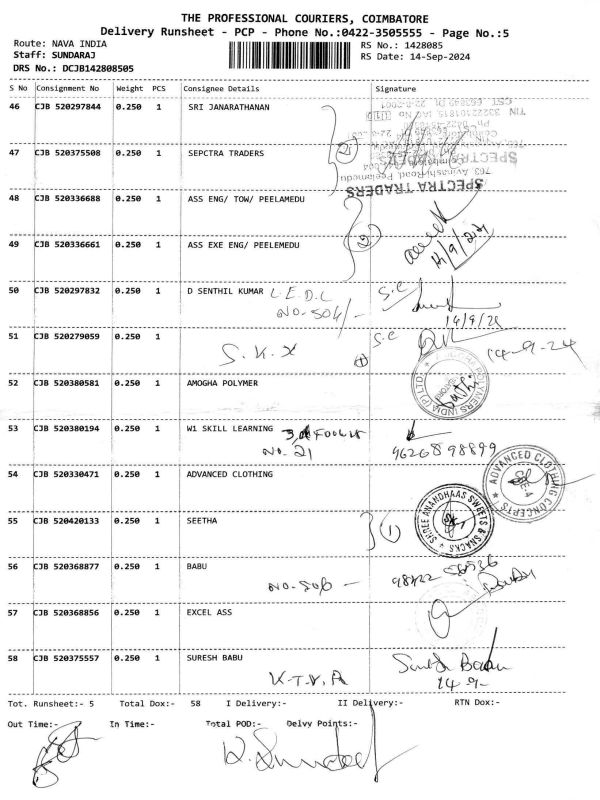 THE PROFESSIONAL COURIERS, COIMBATORE
Delivery Runsheet - PCP - Phone No.:0422-3505555 - Page No.:5
Route: NAVA INDIA
Staff: SUNDARAJ
DRS No.: DCJB142808505
RS No.: 1428085
RS Date: 14-Sep-2024
S No Consignment No Weight PCS Consignee Details Signature
46 CJB 520297844 0.250 1 SRI JANARATHANAN
47 CJB 520375508 0.250 1 SEPCTRA TRADERS
SPECTRA TRADERS
703 Avinashi Road, Peelamedu
48 CJB 520336688 0.250 1 ASS ENG/ TOW/ PEELAMEDU
49 CJB 520336661 0.250 1 ASS EXE ENG/ PEELEMEDU
2
14/9/24
50 CJB 520297832 0.250 1 D SENTHIL KUMAR L.E.D.L S.C
NO-504/-
14/9/24
51 CJB 520279059 0.250 1 S.C
S.K.X 14-9-24
52 CJB 520380581 0.250 1 AMOGHA POLYMER
53 CJB 520380194 0.250 1 W1 SKILL LEARNING
NO. 21 96268 98899
54 CJB 520330471 0.250 1 ADVANCED CLOTHING
ADVANCED CLOTHING CONCEPTS
55 CJB 520420133 0.250 1 SEETHA
1
SHREE ANANDHAAS SWEETS & SNACKS
56 CJB 520368877 0.250 1 BABU
Babu
57 CJB 520368856 0.250 1 EXCEL ASS
58 CJB 520375557 0.250 1 SURESH BABU
K-T.V.A Suresh Babu
14-9-
Tot. Runsheet:- 5 Total Dox:- 58 I Delivery:- II Delivery:- RTN Dox:-
Out Time:- In Time:- Total POD:- Delvy Points:-